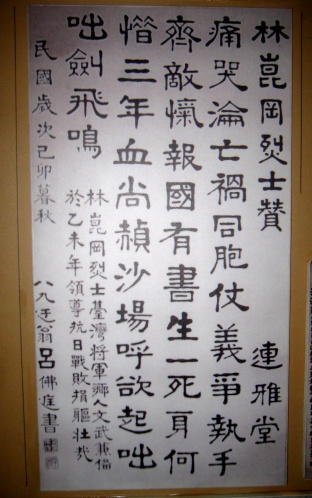 林崑岡烈士贊 連雅堂
痛哭淪亡禍同胞仗義爭執手
齊敵愾報國有書生一死身何
惜三年血尚赬沙場呼欲起咄
咄劍飛鳴
林崑岡烈士臺灣將軍鄉人文武兼備
於乙未年領導抗日戰敗捐軀壯哉
民國歲次己卯暮秋 八九迂翁呂佛庭書